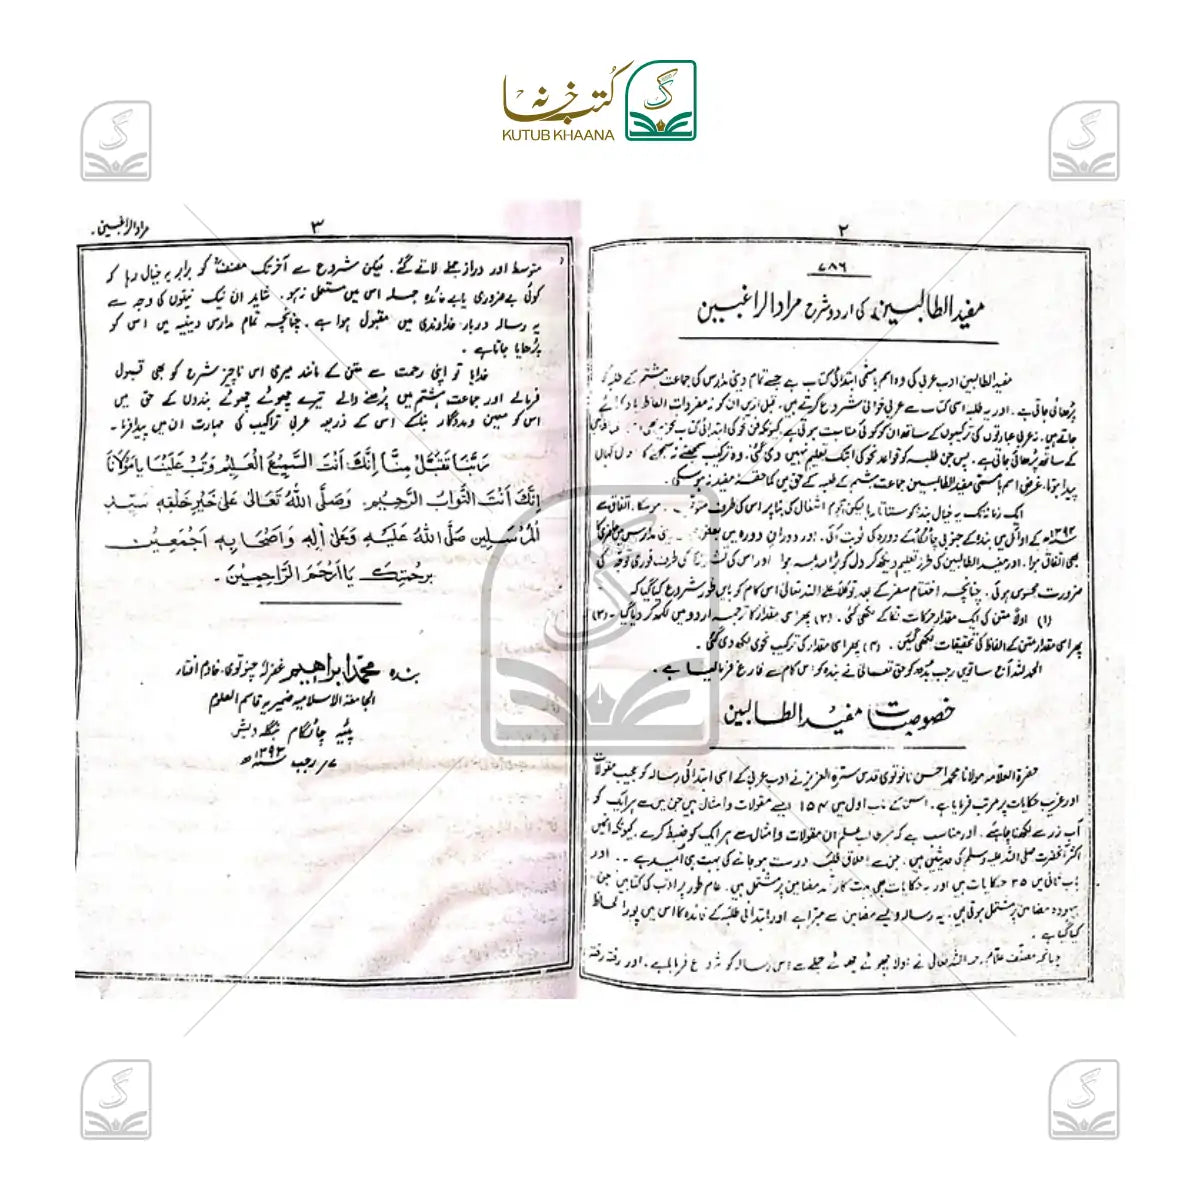 کتب خانہ
KUTUB KHAANA
۲
۷۸۶
مفید الطالبین کی اردو شرح مراد الراغبین
مفید الطالبین ادب عربی کی وہ اہم بامسمی ابتدائی کتاب ہے جسے تمام دینی مدارس کی جماعت ہشتم کے طلبہ کو
پڑھائی جاتی ہے۔ اور یہ طلبہ اسی کتاب سے عربی خوانی شروع کرتے ہیں۔ قبل ازیں ان کو نہ مفردات الفاظ یاد کرائے
جاتے ہیں۔ نہ عربی عبارتوں کی ترکیبوں کے ساتھ ان کو کوئی مناسبت ہوتی ہے کیونکہ فن نحو کی ابتدائی کتاب نحو میر بھی
کے ساتھ پڑھائی جاتی ہے۔ پس جن طلبہ کو قواعد نحو کی اتبک تعلیم نہیں دی گئی۔ وہ ترکیب سمجھنے نہ سمجھنے کا کہاں
پیدا ہوتا۔ غرض اسم بامسمی مفید الطالبین جماعت ہشتم کے طلبہ کے حق میں کما حقہ مفید نہ ہو سکی۔
ایک زمانہ تک یہ خیال بندہ کو ستاتا رہا لیکن ہجوم اشغال کی بنا پر اس کی طرف متوجہ نہ ہو سکا۔ اتفاق سے
۱۳۹۳ھ کے اوائل میں بندہ کے جنوبی چاٹگام کے دورہ کی نوبت آئی۔ اور دوران دورہ میں بعض دینی مدارس میں حاضری کا
بھی اتفاق ہوا۔ اور مفید الطالبین کی طرز تعلیم دیکھ کر دل کو بڑا صدمہ ہوا اور اس کی طرف فوری توجہ کی
ضرورت محسوس ہوئی۔ چنانچہ اختتام سفر کے بعد توکلت علی اللہ تعالیٰ اس کام کو بایں طور شروع کیا گیا کہ
(۱) اولاً متن کی ایک مقدار حرکات لگا کے لکھی گئی۔ (۲) پھر اسی مقدار کا ترجمہ اردو میں لکھ کر دیا گیا۔ (۳)
پھر اسی مقدار متن کے الفاظ کی تحقیقات لکھی گئیں۔ (۴) پھر اسی مقدار کی ترکیب نحوی لکھ دی گئی
الحمد للہ آج ساتویں رجب بندہ کو حق تعالیٰ نے بندہ کو اس کام سے فارغ فرما لیا ہے۔
خصوصیات مفید الطالبین
حضرة العلامہ مولانا محمد احسن نانوتوی قدس سرہ العزیز نے ادب عربی کے اسی ابتدائی رسالہ کو عجیب مقولات
اور غریب حکایات پر مرتب فرمایا ہے۔ اس کے باب اول میں ۱۵۴ ایسے مقولات و امثال ہیں جن میں سے ہر ایک کو
آب زر سے لکھنا چاہئے۔ اور مناسب ہے کہ ہر طالب علم ان مقولات و امثال سے ہر ایک کو ضبط کرے۔ کیونکہ انمیں
اکثر آنحضرت صلی اللہ علیہ وسلم کی حدیثیں ہیں۔ جن سے اخلاق طلبہ درست ہو جانے کی بہت ہی امید ہے۔ اور
باب ثانی میں ۳۵ حکایات ہیں اور یہ حکایات بھی بہت کار آمد مضامین پر مشتمل ہیں۔ عام طور پر ادب کی کتابیں جن
بیہودہ مضامین پر مشتمل ہوتی ہیں۔ یہ رسالہ ویسے مضامین سے مبرا ہے اور ابتدائی طلبہ کے فائدہ کا اس میں پورا لحاظ
کیا گیا ہے۔
چنانچہ مصنف علام رحمہ اللہ تعالیٰ نے اولاً چھوٹے چھوٹے جملے سے اس رسالہ کو شروع فرمایا ہے۔ اور رفتہ رفتہ
مراد الراغبین۔
۳
متوسط اور دراز جملے لائے گئے۔ لیکن شروع سے آخر تک مصنفؒ کو برابر یہ خیال رہا کہ
کوئی بے ضروری یا بے فائدہ جملہ اس میں مستعمل نہ ہو۔ شاید ان نیک نیتوں کی وجہ سے
یہ رسالہ دربار خداوندی میں مقبول ہوا ہے۔ چنانچہ تمام مدارس دینیہ میں اس کو
پڑھایا جاتا ہے۔
خدایا تو اپنی رحمت سے متن کے مانند میری اس ناچیز شرح کو بھی قبول
فرمالے اور جماعت ہشتم میں پڑھنے والے تیرے چھوٹے چھوٹے بندوں کے حق میں
اس کو معین و مددگار بنا کے اس کے ذریعہ عربی تراکیب کی مہارت ان میں پیدا فرما۔
رَبَّنَا تَقَبَّلْ مِنَّا إِنَّكَ أَنْتَ السَّمِيعُ الْعَلِيمُ وَتُبْ عَلَيْنَا يَا مَوْلَانَا
إِنَّكَ أَنْتَ التَّوَّابُ الرَّحِيمُ۔ وَصَلَّى اللهُ تَعَالَى عَلَى خَيْرِ خَلْقِهِ سَيِّدِ
الْمُرْسَلِينَ صَلَّى اللهُ عَلَيْهِ وَعَلَى اٰلِهٖ وَاَصْحَابِهٖ اَجْمَعِيْنَ
بِرَحْمَتِكَ يَا اَرْحَمَ الرَّاحِمِيْنَ۔
بندہ محمد ابراہیم غفرلہ خادم افتاء
الجامعۃ الاسلامیہ ضمیریہ قاسم العلوم
پٹیہ چاٹگام بنگلہ دیش
۷/ رجب ۱۳۹۳ھ